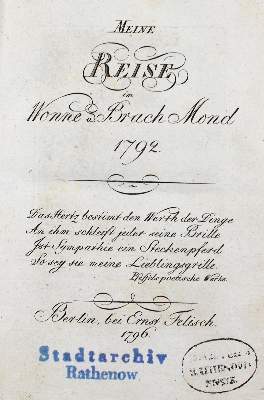 MEINE
REISE
im
Wonne u Brach Mond
1792.
Das Hertz bestimt den Werth der Dinge
An ihm schleift jeder seine Brille
Jst Sympathie ein Steckenpferd
So sey sie meine Lieblingsgrille.
poetische Werke.
Berlin, bei Ernst Felisch.
1796.
Stadtarchiv
Rathenow
RATHENOW